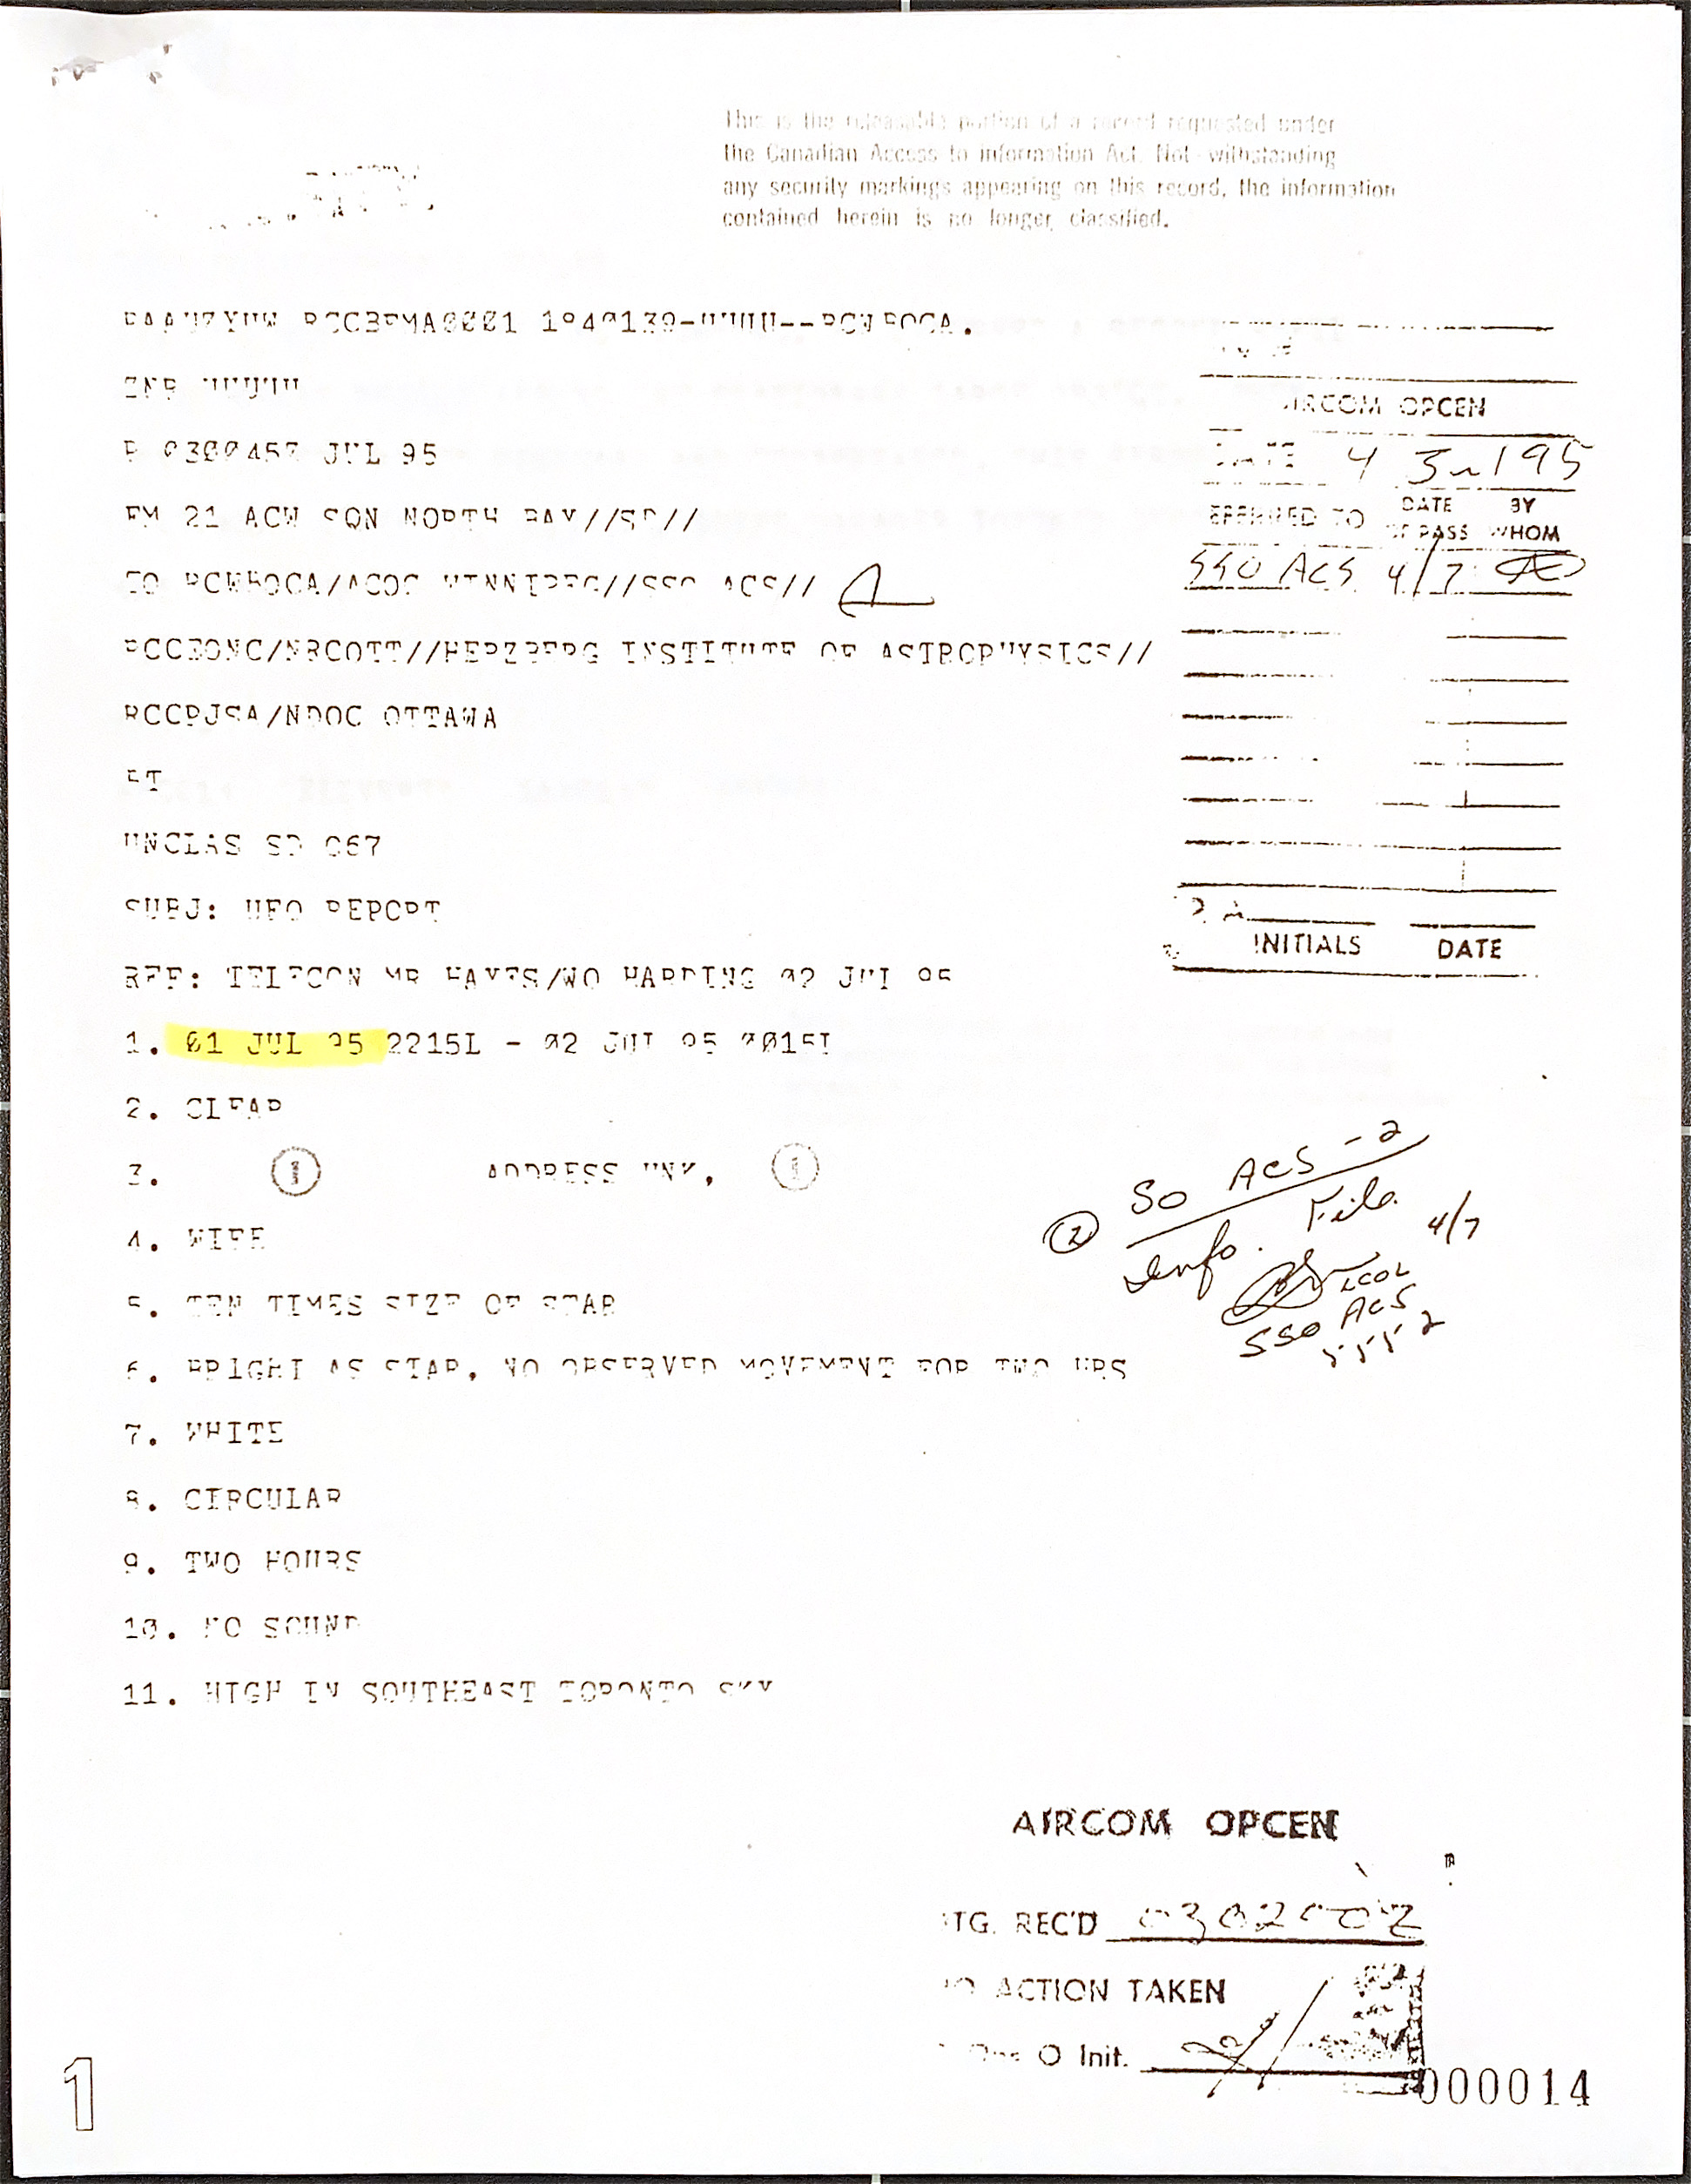 This is the releasable portion of a record requested under
the Canadian Access to information Act. Not withstanding
any security markings appearing on this record, the information
contained herein is no longer classified.
ZNR UUUUU
R 030045Z JUL 95
FM 21 ACW SQN NORTH BAY//SD//
TO RCWBOCA/ACOC WINNIPEG//SSO ACS//
RCCEONC/NRCOTT//HERZBERG INSTITUTE OF ASTROPHYSICS//
RCCPJSA/NDOC OTTAWA
BT
UNCLAS SD 067
SUBJ: UFO REPORT
REF: TELECON MR HAYES/WO HARDING 02 JUL 95
1. 01 JUL 95 2215L - 02 JUL 95 0015L
2. CLEAR
3. 1 ADDRESS UNK, 1
4. WIFE
5. TEN TIMES SIZE OF STAR
6. BRIGHT AS STAR, NO OBSERVED MOVEMENT FOR TWO HRS
7. WHITE
8. CIRCULAR
9. TWO HOURS
10. NO SOUND
11. HIGH IN SOUTHEAST TORONTO SKY
AIRCOM OPCEN
DATE 4 Jul 95
REFERRED TO DATE OF PASS BY WHOM
SSO ACS 4/7
P.A.
INITIALS DATE
2 SO ACS-2
Info. File. 4/7
LCOL
SSO ACS
5552
AIRCOM OPCEN
DTG. REC'D 030200Z
NO ACTION TAKEN
O Init.
000014
1